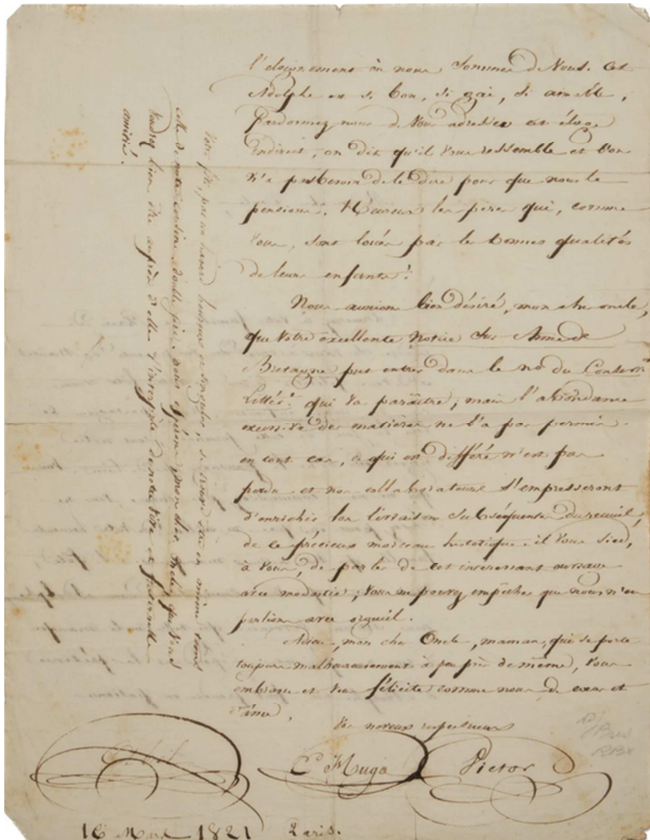 l'éloignement où nous sommes de Vous. Cet
Adolphe est si bon, si gai, si aimable,
Pardonnez nous de vous adresser cet éloge
Indirect, on dit qu'il vous ressemble et l'on
n'a pas besoin de le dire pour que nous le
pensions. Heureux les pères qui, comme
Vous, sont loués par les bonnes qualités
de leurs enfants!
Nous aurions bien désiré, mon cher oncle,
que votre excellente Notice sur Anne de
Bretagne pût entrer dans le no du Conserv.
Littér. qui va paraître, mais l'abondance
excessive des matières ne l'a pas permis.
en tout cas, ce qui est différé n'est pas
perdu et nos collaborateurs s'empresseront
d'enrichir la livraison subséquente du recueil,
de ce précieux morceau historique. il vous sied,
à vous, de parler de cet intéressant ouvrage
avec modestie; vous ne pouvez empêcher que nous n'en
parlions avec orgueil.
Adieu, mon cher Oncle, maman, qui se porte
toujours malheureusement à peu près de même, vous
embrasse et vous félicite comme nous de cœur et
d'âme.
Vos neveux respectueux
E Hugo Victor
16 Mars 1821 Paris.
Votre fête, par un hasard
celle de notre cousine
Voudrez bien être auprès d'elle l'interprète de notre vive et fraternelle
amitié.